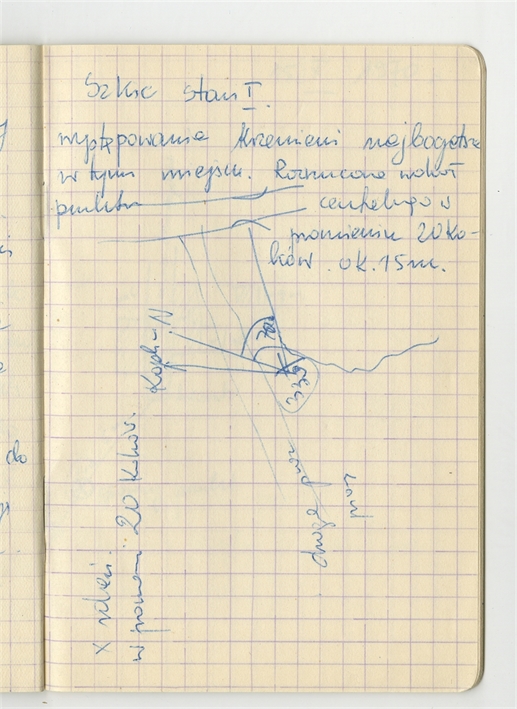 Szkic stan I.
występowanie krzemieni najbogatsze
w tym miejscu. Rozrzucone wokół
punktu centralnego o
promieniu 20 kro-
ków. ok. 15m.
N
70
330
droga
X
w promieniu 20 kroków.